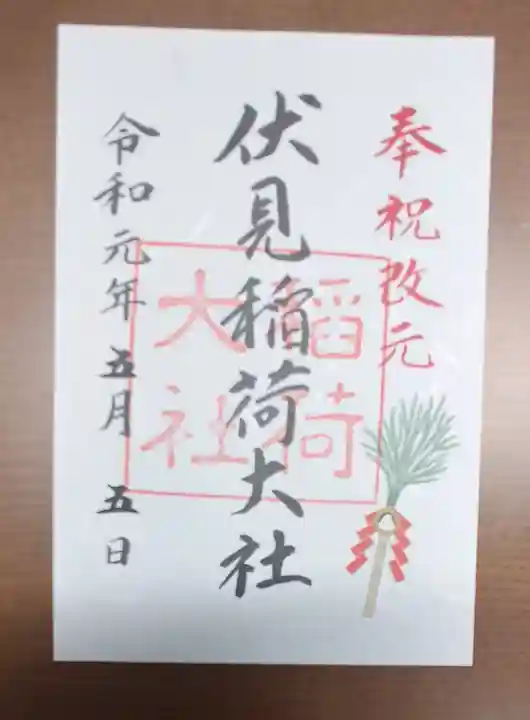 奉祝改元
伏見稲荷大社
稲荷
大社
令和元年五月 五日